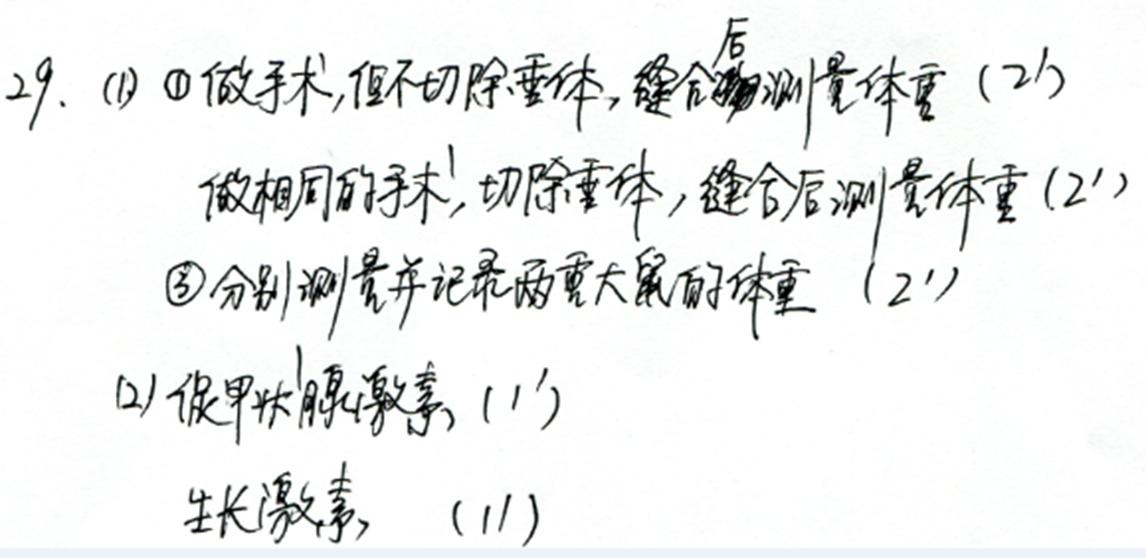 29. (1) ①做手术,但不切除垂体,缝合后测量体重 (2')
做相同的手术,切除垂体,缝合后测量体重 (2')
③分别测量并记录两重大鼠的体重 (2')
(2) 促甲状腺激素 (1')
生长激素 (1')